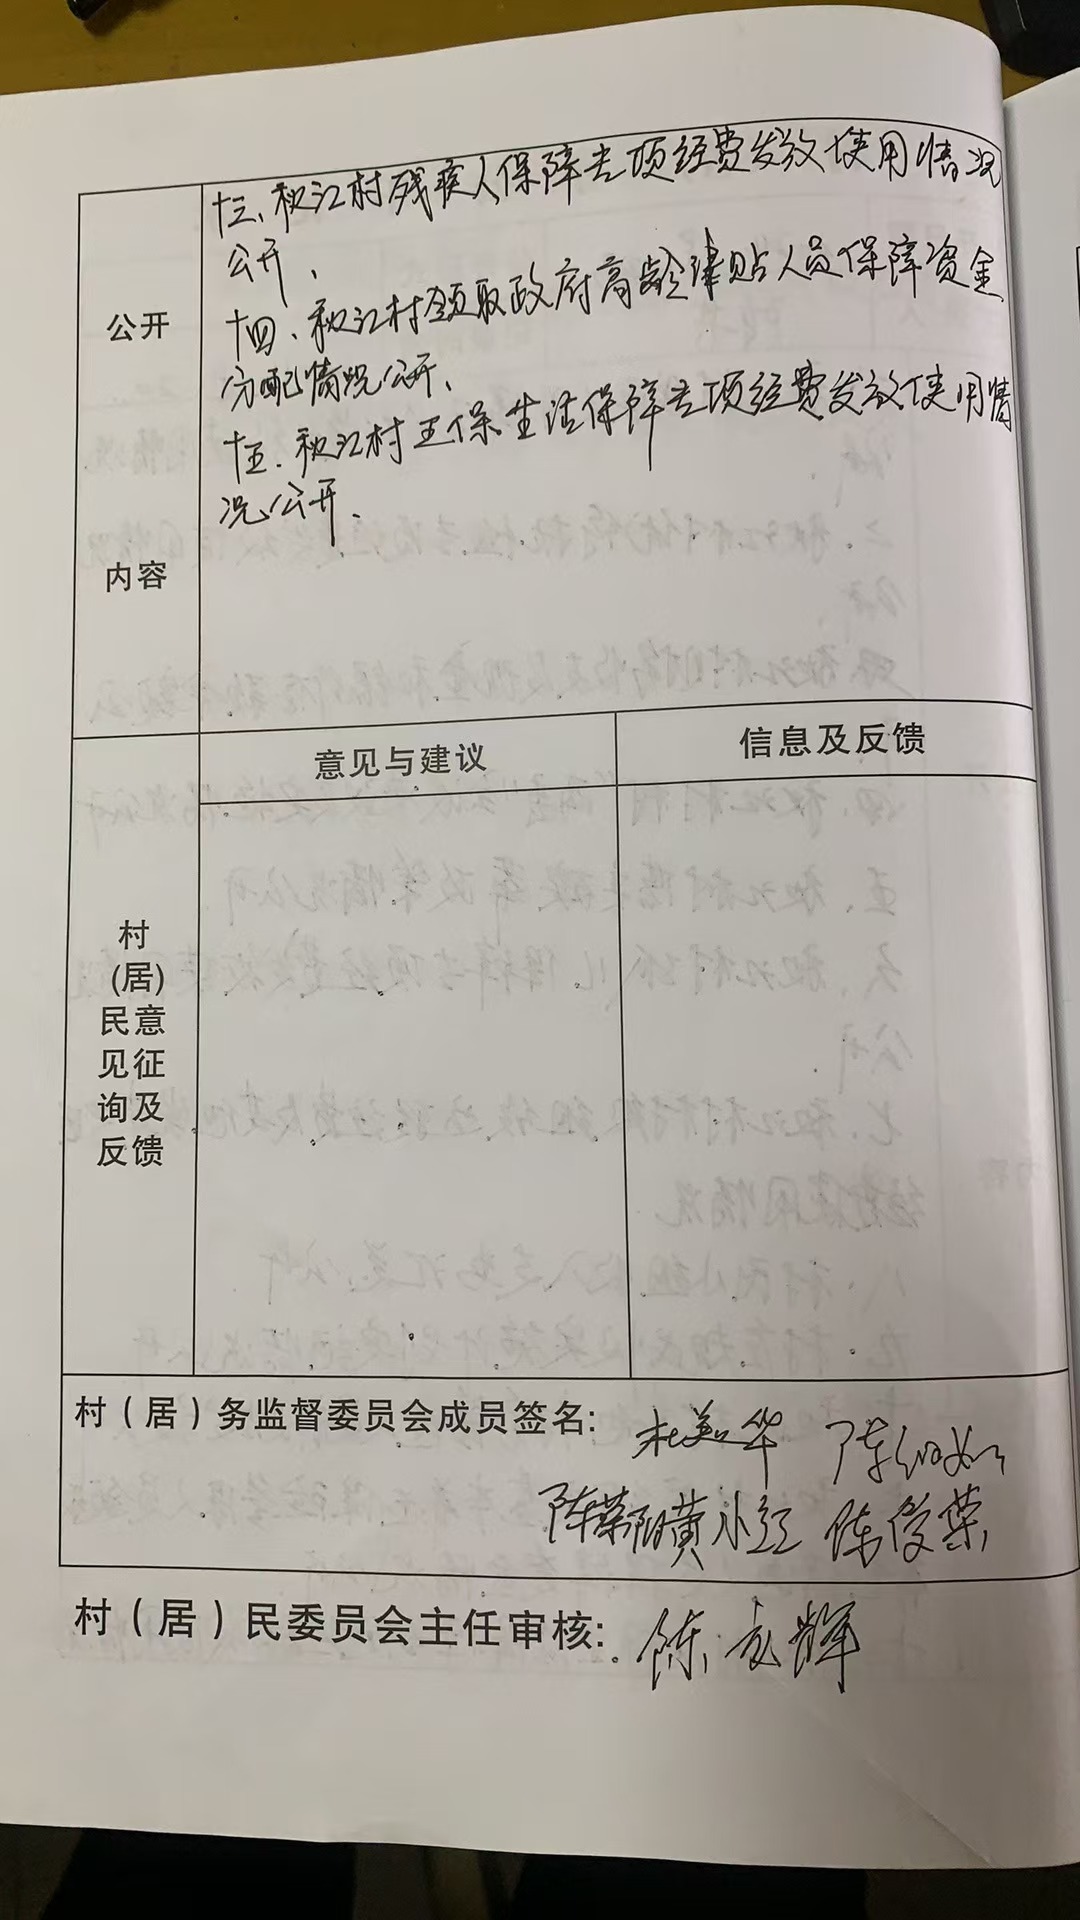 十三、秋江村残疾人保障专项经费发放使用情况
公开、
十四、秋江村领取政府高龄津贴人员保障资金
分配情况公开、
十五、秋江村五保生活保障专项经费发放使用情
况公开、
公开
内容
意见与建议
信息及反馈
村
(居)
民意
见征
询及
反馈
村（居）务监督委员会成员签名:
杜美华
陈荣阳 黄小江 陈俊荣
村（居）民委员会主任审核:
陈 辉